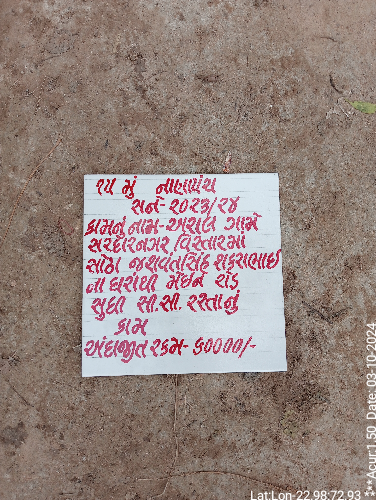 ૧૫ મું નાણાપંચ
સને- ૨૦૨૩/૨૪
કામનું નામ- અરાલ ગામે
સરદારનગર વિસ્તારમાં
સોઠા જશવંતસિંહ શકરાભાઈ
ના ઘરોથી મેઈન રોડ
સુધી સી.સી. રસ્તાનું
કામ
અંદાજીત રકમ- ૬૦૦૦૦/-
Lat:Lon-22.98:72.93 ***Acur:1.50 Date: 03-10-2024